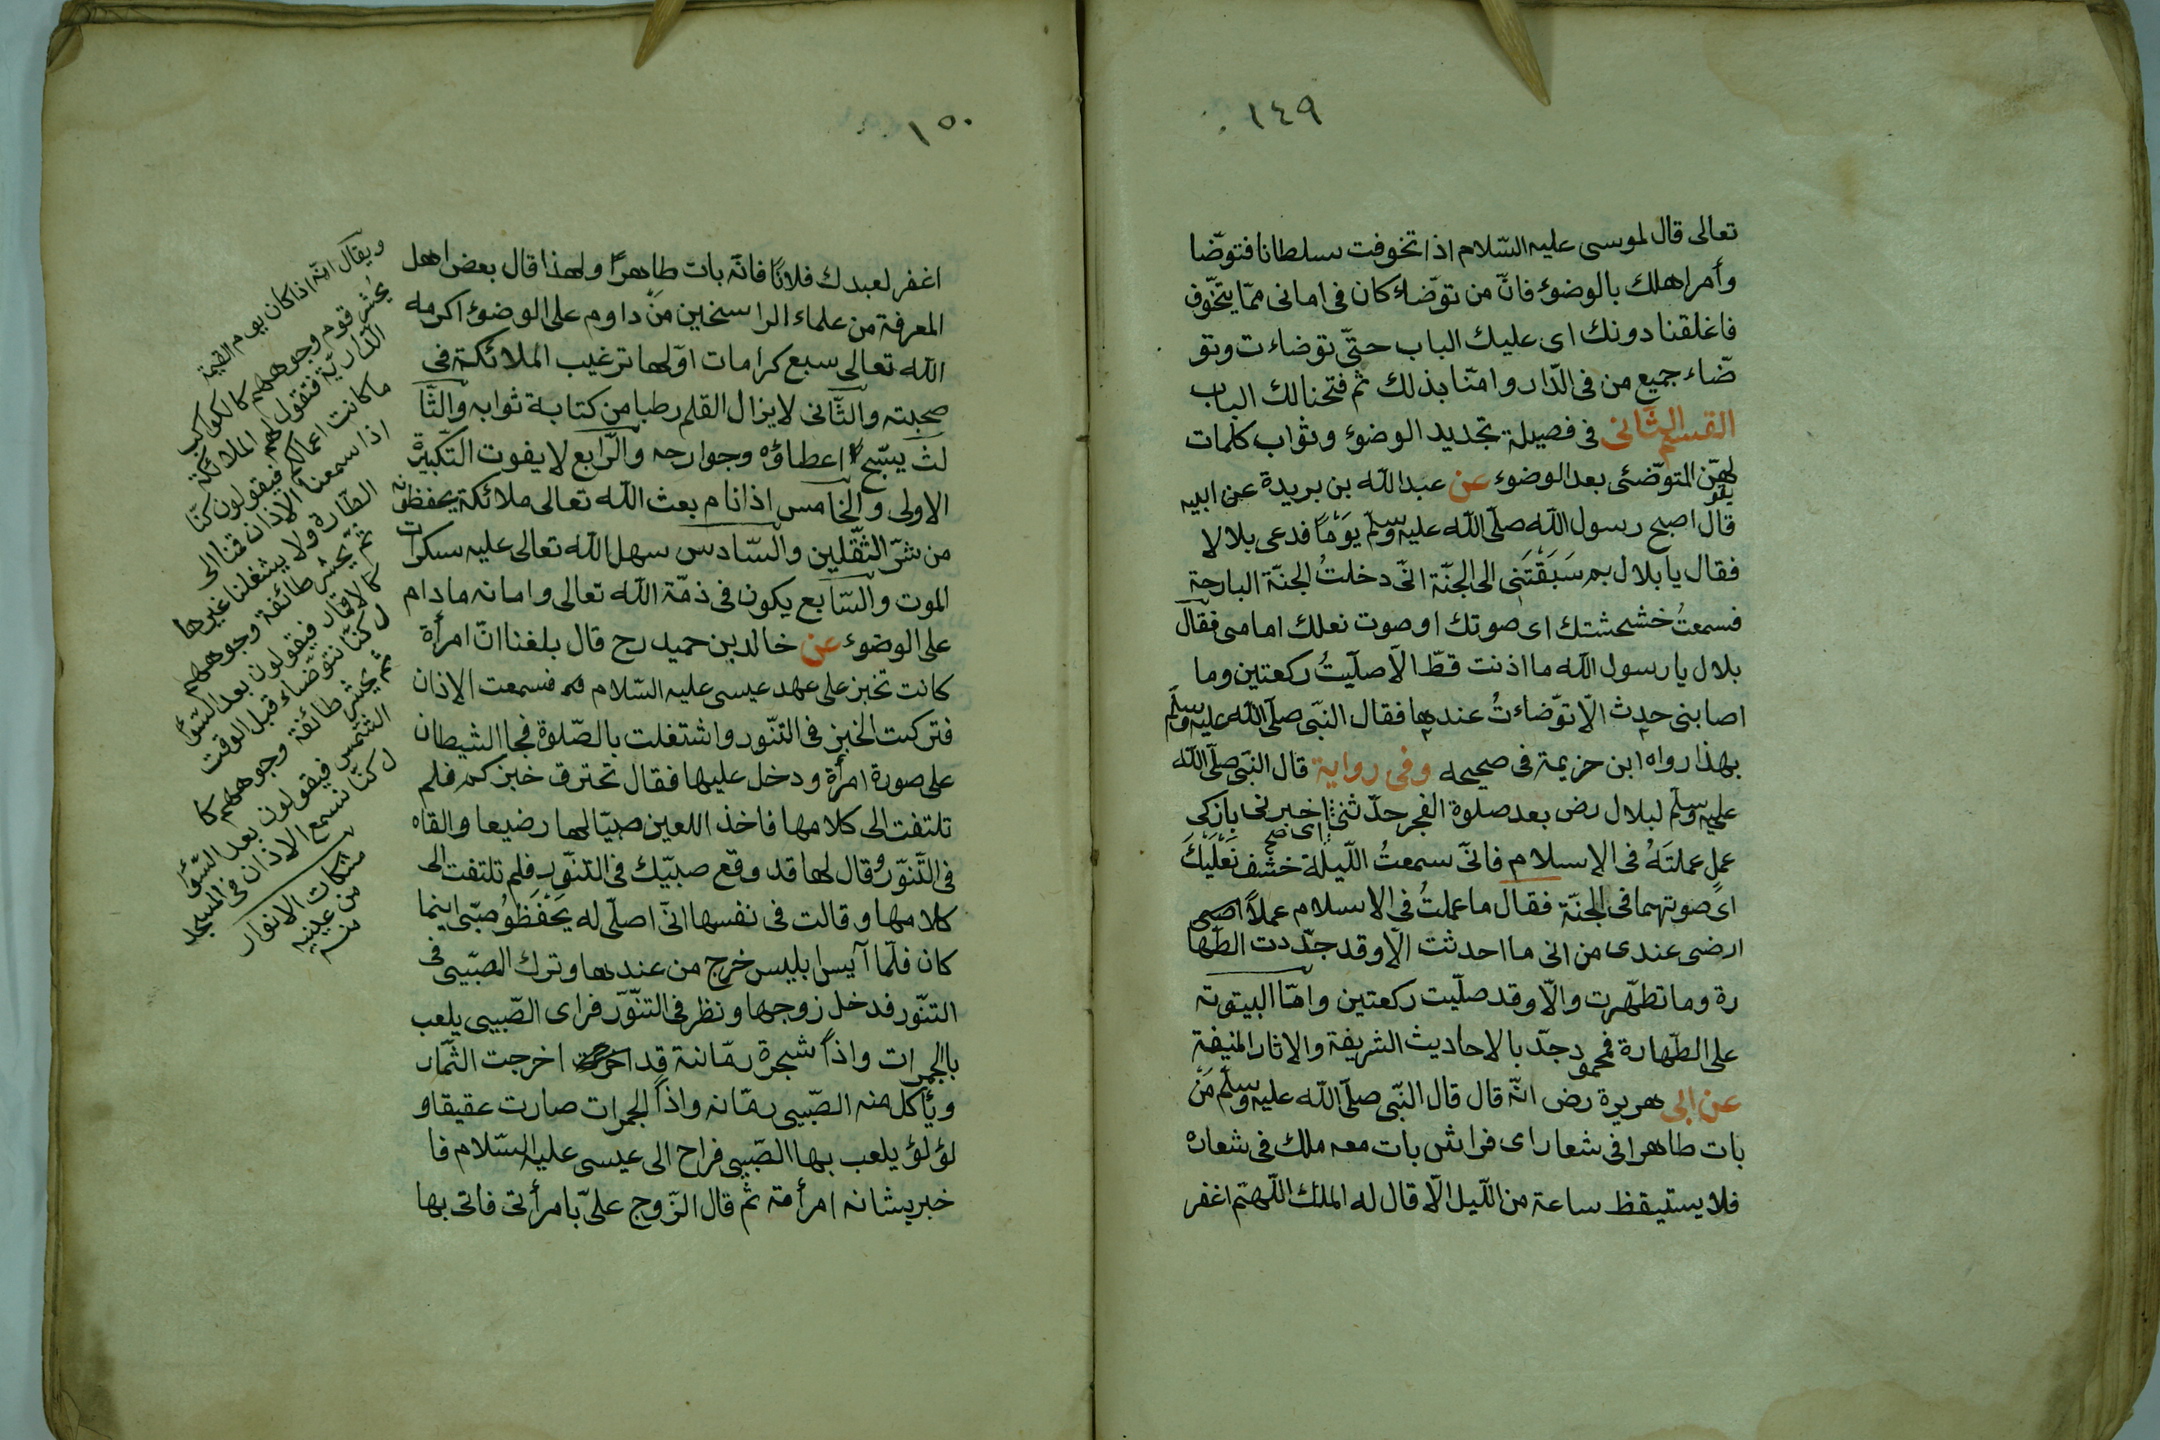 ١٤٩
تعالى قال لموسى عليه السّلام اذا تخوفت سلطانا فتوضّا
وأمر اهلك بالوضوء فانّ من توضّاء كان فى امانى ممّا يتخّوف
فاغلقنا دونك اى عليك الباب حتّى توضاءت وتو
ضّاء جميع من فى الدّار وامنّا بذلك ثم فتحنا لك الباب
القسم الثّانى فى فصيلة تجديد الوضوء وثواب كلمات
يقولهنّ المتوضّئى بعد الوضوء عن عبد اللّه بن بريدة عن ابيه
قال اصبح رسول اللّه صلّى اللّه عليه وسلّم يوَمًا فدعى بلالا
فقال يا بلال بم سَبَقْتَنِى الى الجنّة انّى دخلتُ الجنّة البارحة
فسمعتُ خشحشتك اى صوتك او صوت نعلك امامى فقال
بلال يا رسول اللّه ما اذنت قطّ الّا صلّيتُ ركعتين وما
اصابنى حدث الّا توّضاءتُ عندها فقال النّبى صلّى اللّه عليه وسلّم
بهذا رواه ابن خزيمة فى صحيحه وفى رواية قال النّبى صلّى اللّه
عليه وسلّم لبلال رض بعد صلوة الفجر حدّثنى اى اخبرنى بازكى
عملٍ عملتَهُ فى الاسلام فانّى سمعتُ اللّيلة خشف نَعْلَيْكَ
اى صوتهما فى الجنّة فقال ما عملتُ فى الاسلام عملاً
ارضى عندى من انى ما احدثت الّا وقد جدّدت الطّها
رة وما تطهّرت والّا وقد صلّيت ركعتين وامّا البيتوتة
على الطّهارة فمحمود جدّ بالاحاديث الشريفة والاثار المنيفة
عن ابى هريرة رض انّه قال قال النّبى صلّى اللّه عليه وسلّم مَنْ
بات طاهرا فى شعار اى فراش بات معه ملك فى شعاره
فلا يستيقظ ساعة من اللّيل الّا قال له الملك اللّهمّ اغفر
١٥٠
اغفر لعبدك فلانًا فانّه بات طاهرًا ولهذا قال بعض اهل
المعرفة من علماء الراسخين مَنْ داوم على الوضوء اكرمه
اللّه تعالى سبع كرامات اوّلها ترغيب الملائكة فى
صحبته والثّانى لا يزال القلم رطبا من كتابة ثوابه والثّا
لث يسّبح اعطاؤه وجوارحه والرّابع لا يفوت التّكبيرة
الاولى والخامس اذا نام بعث اللّه تعالى ملائكة يحفظونه
من شرّ الثّقلين والسّادس سهل اللّه تعالى عليه سكرات
الموت والسّابع يكون فى ذمّة اللّه تعالى وامانه مادام
على الوضوء عن خالد بن حميد رح قال بلغنا انّ امرأة
كانت تخبز على عهد عيسى عليه السّلام فسمعت الاذان
فتركت الخبز فى التنّور واشتغلت بالصّلوة فجا الشيطان
على صورة امرأة ودخل عليها فقال تحترق خبزكم فلم
تلتفت الى كلامها فاخذ اللعين صبيّا لها رضيعا والقاه
فى التّنوّر وقال لها قد وقع صبيّك فى التنّور فلم تلتفت الى
كلامها وقالت فى نفسها انّى اصلّى له يَحْفَظوُ صبّى اينما
كان فلمّا آيس ابليس خرج من عندها وترك الصّبى فى
التنّور فدخل زوجها ونظر فى التنّوّر فراى الصّبى يلعب
بالجمرات واذاً شجرة رمّانة قد اخرجت الثّمار
ويأكل منه الصّبى رمّانه واذاً الجمرات صارت عقيقا و
لؤلؤ يلعب بها الصّبى فراح الى عيسى عليه السّلام فا
خبر بشانه امرأته ثم قال الزّوج علىّ بامرأتى فاتى بها
ويقال انّه اذا كان يوم القيمة
يُحشر قوم وجوههم كالكواكب
الدّاريّة فتقول لهم الملائكة
ما كانت اعمالكم فيقولون كنّا
اذا سمعنا الاذان قمنا الى
الطّارة ولا يشغلنا غيرها
ثم يّحشر طائفة وجوههم
كالاقمار فيقولون بعد السّؤا
ل كنّا نتوضّاء قبل الوقت
ثم يحشر طائفة وجوههم كا
الشّمس فيقولون بعد السّؤا
ل كنّا نسمع الاذان فى المسجد
مشكات الانوار
من عينيه